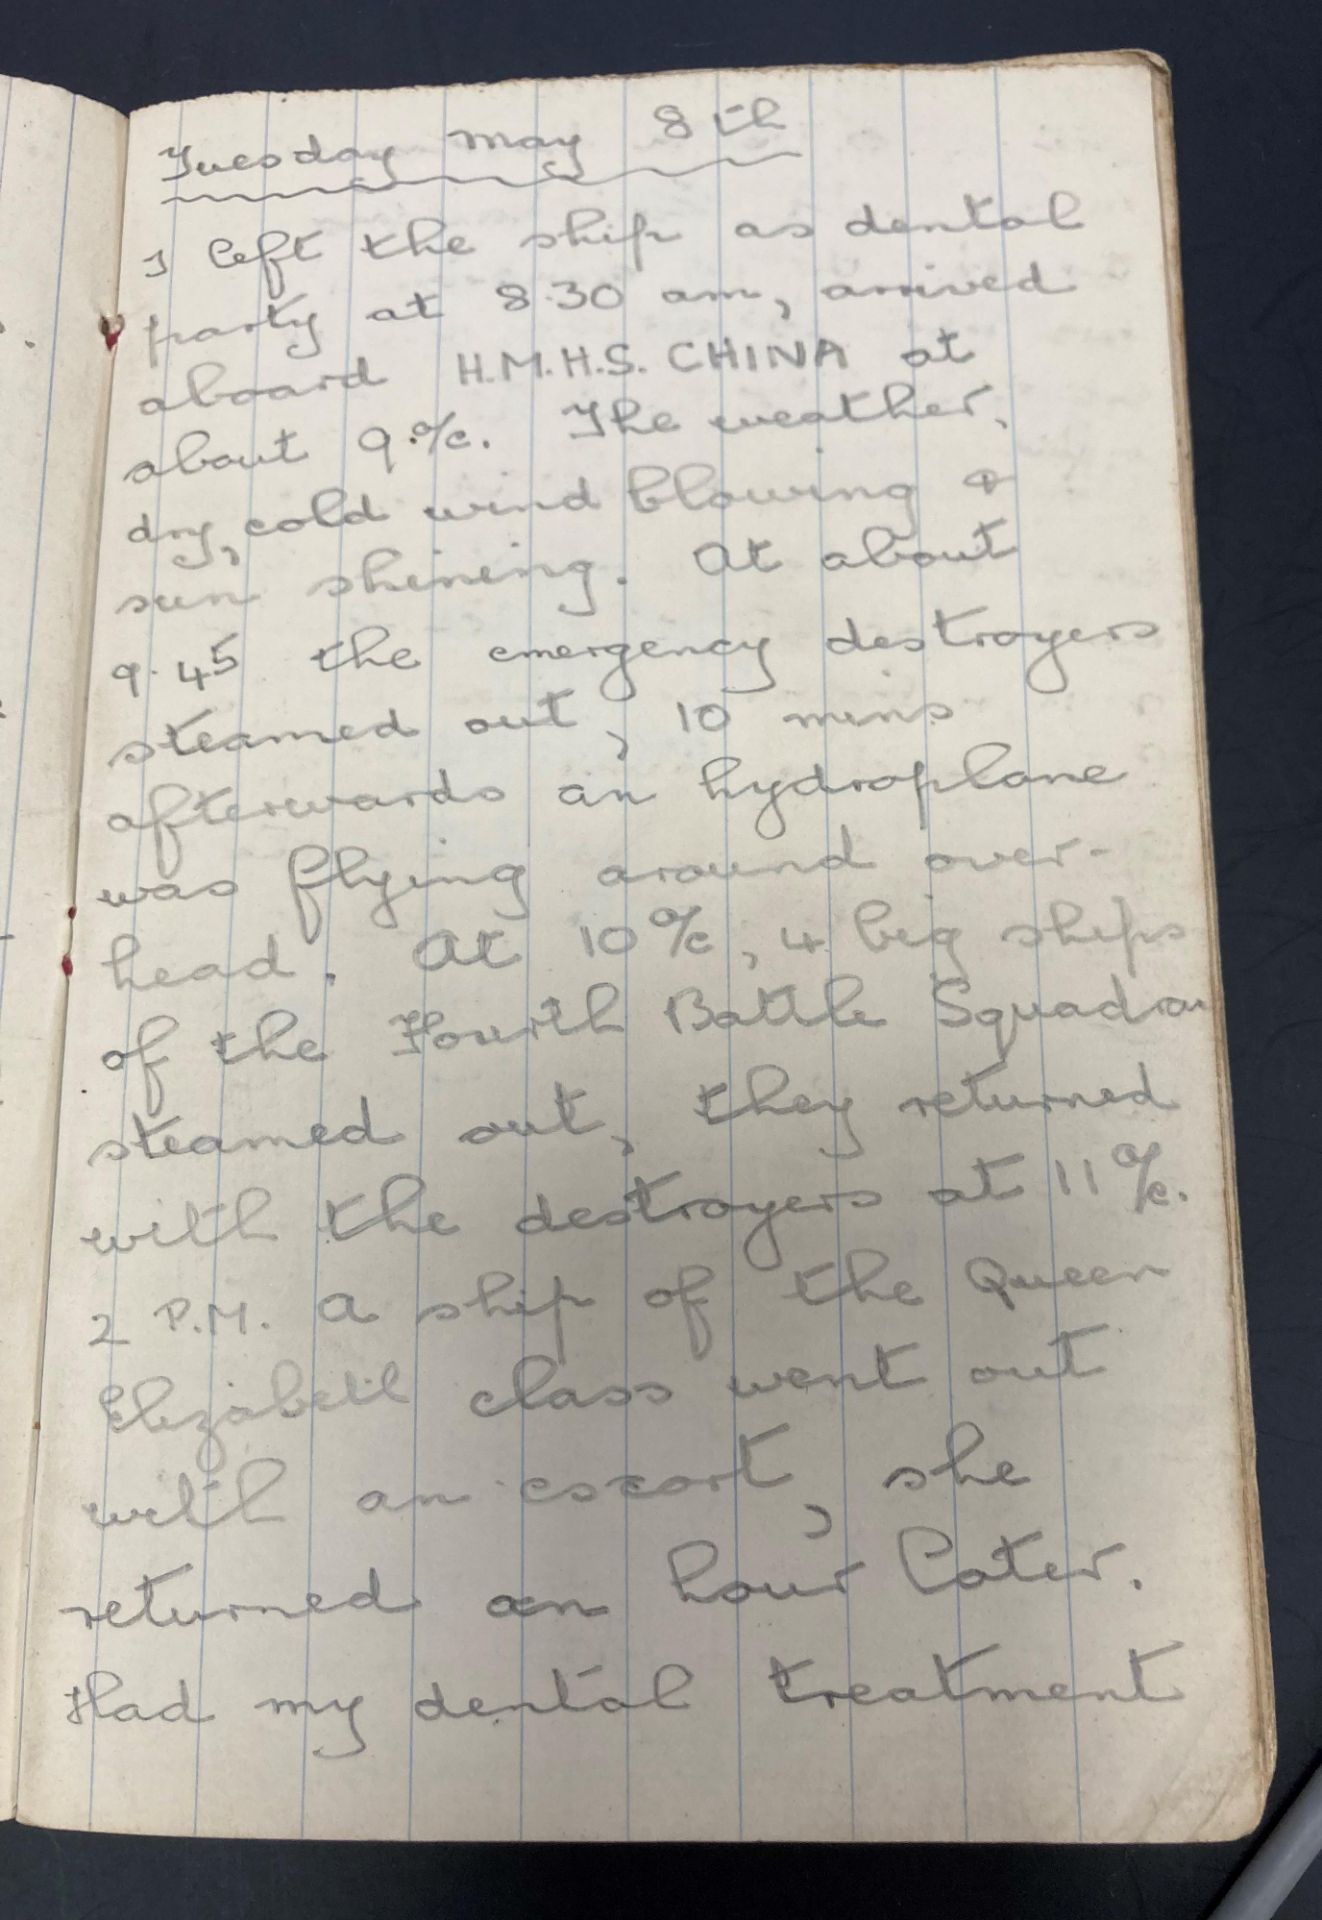 Tuesday May 8th
I left the ship as dental
party at 8.30 am, arrived
aboard H.M.H.S. CHINA at
about 9.o/c. The weather,
dry, cold wind blowing &
sun shining. At about
9.45 the emergency destroyers
steamed out, 10 mins
afterwards an hydroplane
was flying around over-
head. At 10 o/c, 4 big ships
of the Fourth Battle Squadron
steamed out, they returned
with the destroyers at 11 o/c.
2 P.M. A ship of the Queen
Elizabeth class went out
with an escort, she
returned an hour later.
Had my dental treatment